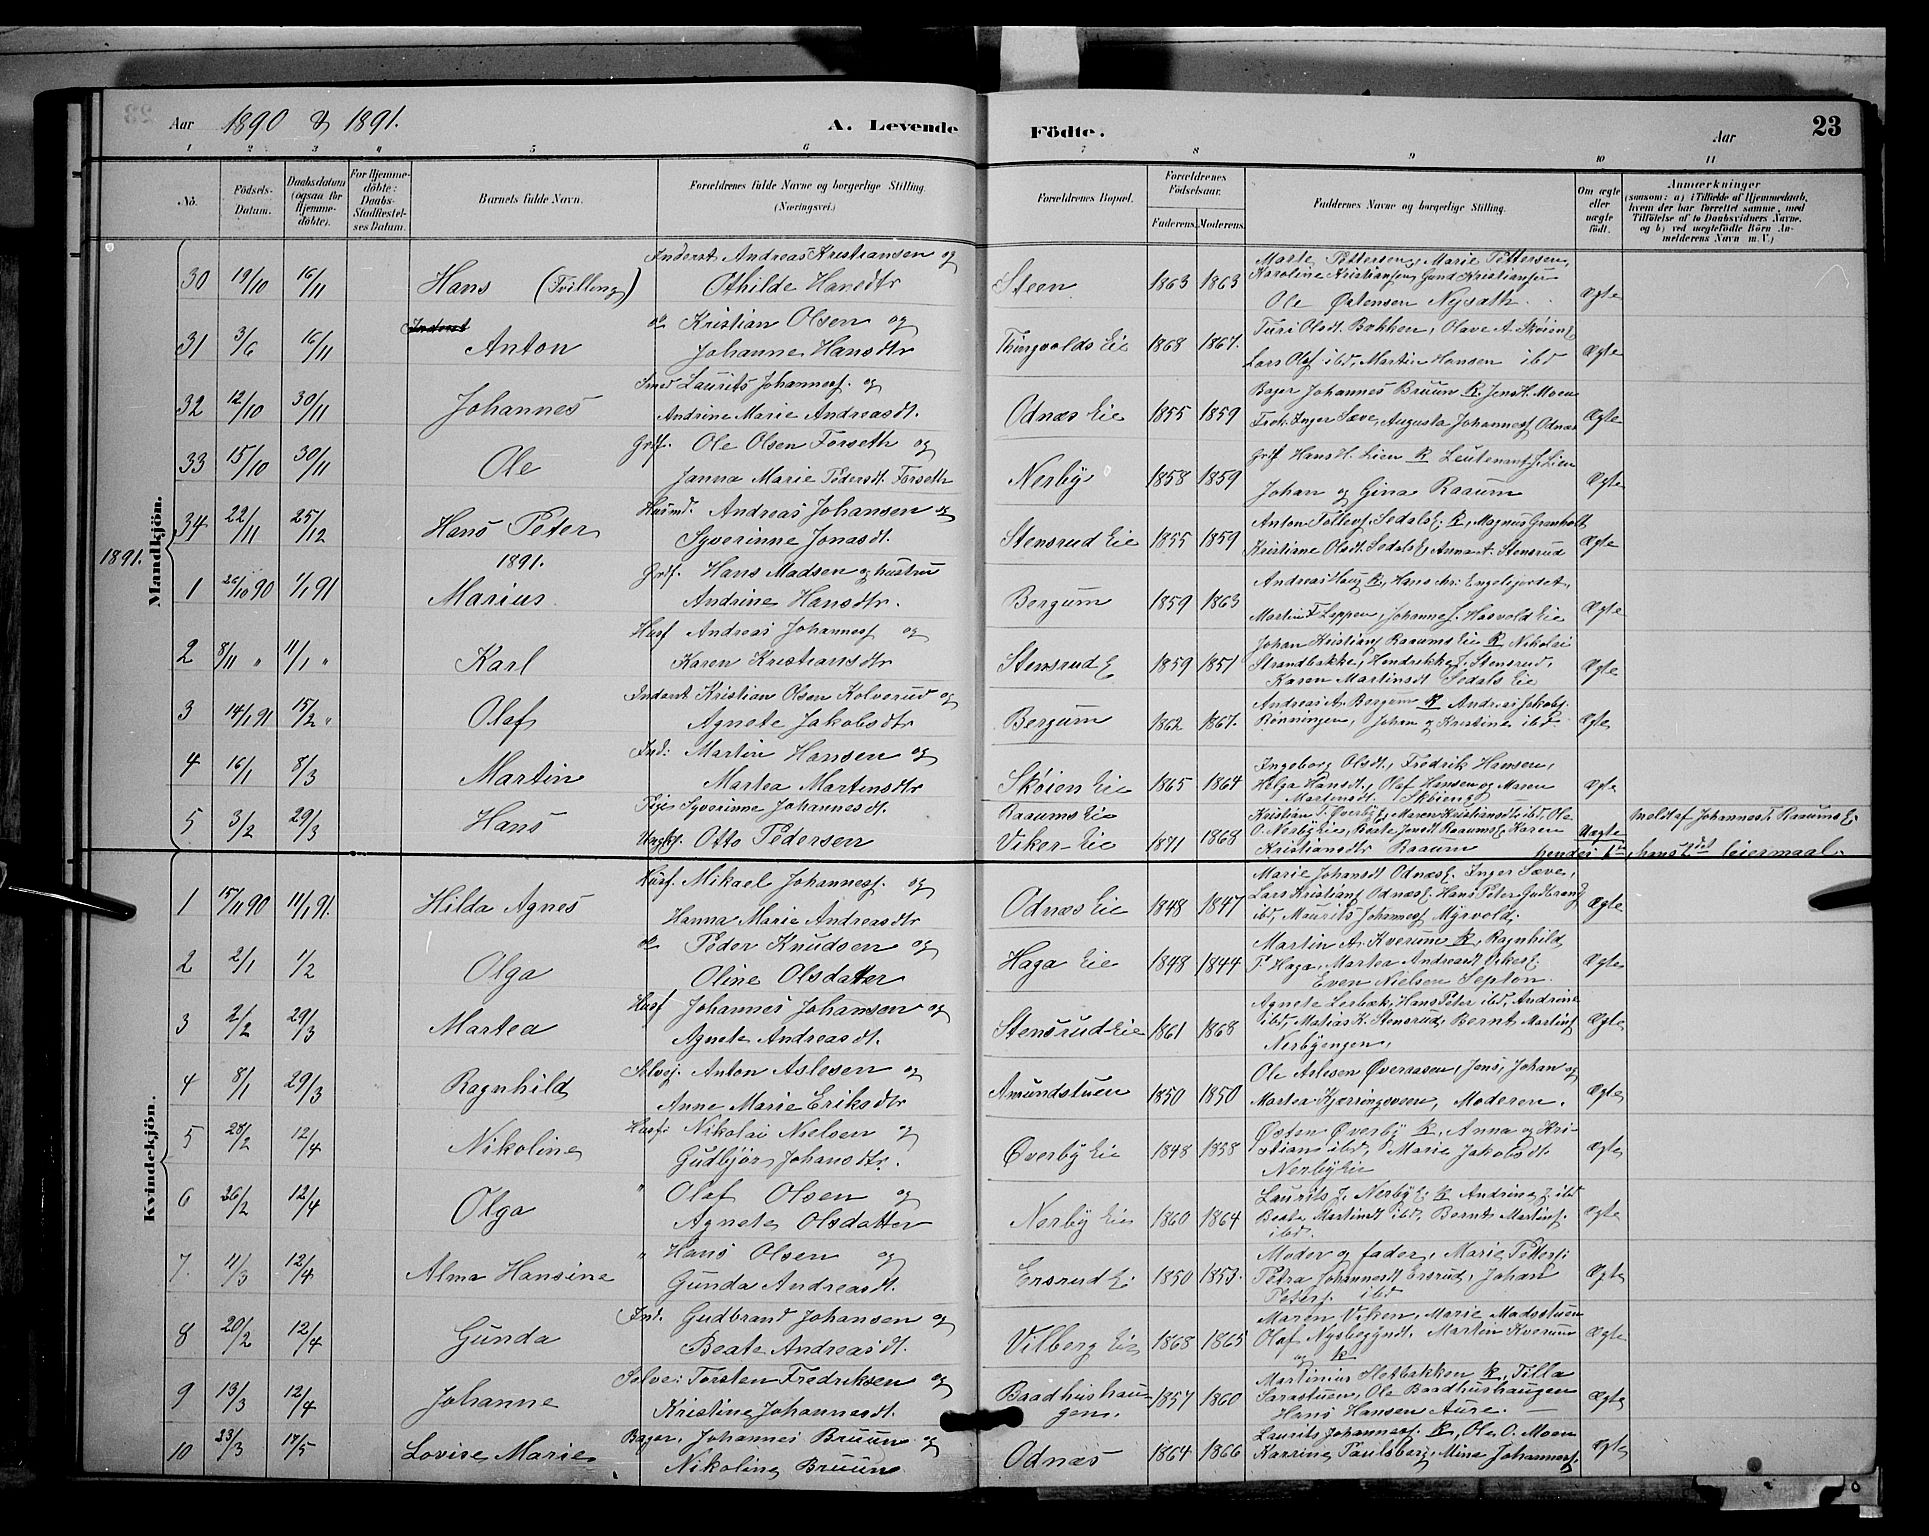 Aar 1890 & 1891. A. Levende Födte. Aar 23
1 2 3 4 5 6 7 8 9 10 11
No. Födsels-Datum. Daabsdatum (ogsaa for Hjemmedöbte). For Hjemmedöbte: Daabs-Stadfæstelses Datum. Barnets fulde Navn. Forældrenes fulde Navne og borgerlige Stilling. (Næringsvei.) Forældrenes Bopæl. Forældrenes Födselsaar. Faderens. Moderens. Faddernes Navne og borgerlige Stilling. Om ægte eller uægte födt. Anmærkninger (saasom: a) i Tilfælde af Hjemmedaab, hvem der har forrettet samme, med Tilföielse af to Daabsvidners Navne, og b) ved uægtefödte Börn Anmelderens Navn m. V.)
Mandkjön.
Inderst Andreas Kristiansen og Marte Pettersen, Marie Pettersen,
30 19/10 16/11 Hans (Tvilling) Othilde Hansdtr Steen 1863 1863 Karoline Kristiansen, Gund Kristiansen Ægte
Ole Østensen Nysæth
Inderst do Kristian Olsen og Turi Olsdt. Bakken, Olave A. Skøien E
31 3/6 16/11 Anton Johanne Hansdtr Thingvolds Eie 1868 1867. Lars Olsf ibd, Martin Hansen ibd Ægte
Smed Laurits Johannesf. og Bager Johannes Bruun K. Jens H. Moen
32 12/10 30/11 Johannes Andrine Marie Andreasdt. Odnæs Eie 1855 1859 Frøk. Inger Sæve, Augusta Johannesf Odnæs Ægte
Grdf. Ole Olsen Forseth og Grdf Hans H. Lien K Leutenant J. Lien
33 15/10 30/11 Ole Janna Marie Pedersdt. Forseth Nerby 1858 1859 Johan og Gina Raaum Ægte
Husmd. Andreas Johansen og Anton Tollevf. Sedals E. K, Magnus Granholt
34 22/11 25/12 Hans Peter Syverinne Jonasdt. Stensrud Eie 1855 1859 Kristiane Olsdt. Sedals E, Anna A. Stensrud Ægte
1891. 1891.
Grdf. Hans Madsen og hustru Andreas Haug K, Hans Chr. Engelsjordet,
1 26/10 90 1/1 91 Marius Andrine Hansdtr. Bergum 1859 1863 Martin T Leppen, Johanne J. Hasvold Eie Ægte
Husf Andreas Johannesf og Johan Kristiansf Raaums Eie K Nikolai
2 8/11 " 11/1 " Karl Karen Kristiansdtr Stensrud E 1859 1851 Strandbakke, Hendrikke J. Stensrud, Ægte
Karen Martinsdt Sedals Eie
Inderst Kristian Olsen Kolverud og Andreas A. Bergum K Andreas Jakobsf.
3 14/1 91 15/2 " Olaf Agnete Jakobsdtr Bergum 1862 1867. Rønningen, Johan og Kristine ibd Ægte
Ind: Martin Hansen og Ingeborg Olsdt., Fredrik Hansen,
4 16/1 8/3 Martin Martea Martensdtr Skøien Eie 1865 1864 Helga Hansdt, Olaf Hansen og Maren Ægte
Martinsdt Skøieneie
Pige Syverinne Johannesdt. Raaums Eie Kristian T. Øverby E, Maren Kristiansdtr ibd, Ole meldt af Johannes T. Raaums E.
5 3/2 29/3 Hans Ungkf. Otto Pedersen Viker Eie 1871 1868 O. Nerby Eie, Beate Jonsdt Raaums E. Karen Uægte
Kristiansdtr Raaum hendes 1ste, hans 2det leiermaal.
Kvindekjön.
Husf. Mikael Johannesf. og Marie Johansdt Odnæs E. Inger Sæve,
1 15/11 90 11/1 91. Hilda Agnes Hanna Marie Andreasdtr Odnæs Eie 1848 1847 Lars Kristiansf Odnæs E, Hans Peter Gudbrandsf Ægte
ibd, Maurits Johannesf Myrvold.
do Peder Knudsen og Martin A. Kverum K, Ragnhild
2 2/1 1/2 Olga Oline Olsdatter Haga Eie 1848 1844 P. Haga, Martea Andreasdt Viker E. Ægte
Even Nielsen Septon.
Husf Johannes Johansen og Agnete Lerbæk, Hans Peter ibd, Andrine
3 2/2 29/3 Martea Agnete Andreasdt. Stensrud Eie 1861 1868 ibd, Matias K. Stensrud, Bernt Martinsf Ægte
Nerbyengen.
Selvej. Anton Aslesen og Ole Aslesen Øveraasen, Jens, Johan og
4 8/1 29/3 Ragnhild Anne Marie Eriksdtr Amundstuen 1850 1850 Martea Kjærringeveen, Moderen. Ægte
Husf: Nikolai Nielsen og Østen Øverby K, Anna og Kri-
5 28/2 12/4 Nikoline Gudbjør Johansdtr. Øverby Eie 1848 1858 stian ibd, Marie Jakobsdt. Ægte
Nerby Eie
" Olaf Olsen og Laurits J. Nerby E. K Andrine J. ibd
6 26/2 12/4 Olga Agnete Olsdatter Nerby Eie 1860 1864 Beate Martinsdt ibd, Bernt Martinsf. Ægte
ibd.
" Hans Olsen og Moder og fader, Marie Pettersf.
7. 11/3 12/4 Alma Hansine Gunda Andreasdt. Ersrud Ei 1850 1853. Petra Johannesdt Ersrud, Johan Ægte
Petersf. ibd
Ind. Gudbrand Johansen og Maren Viken, Marie Madsstuen
8 20/2 12/4 Gunda Beate Andreasdt. Vilberg Eie 1868 1865 Olaf Nysbegyndt, Martin Kverum Ægte
og K
Selvei Torsten Fredriksen og Martinius Hetbakken K, Tilla
9 13/3 12/4 Johanne Kristine Johannesdt. Baadhushaugen. 1857 1860 Sarastuen, Ole Baadhushaugen Ægte
Hans Hansen Aure.
Bager, Johannes Bruun og Laurits Johannesf. K, Ole O. Moen
10 23/3 17/5 Lovise Marie Nikoline Bruun Odnæs 1864 1866 Karrine Paulsberg, Mina Johannesf. Ægte